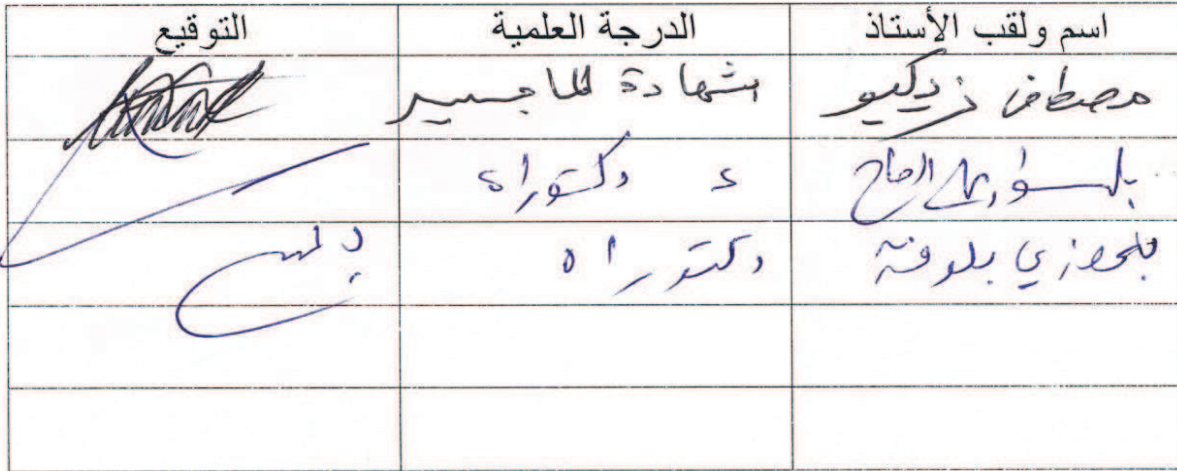 اسم ولقب الأستاذ الدرجة العلمية التوقيع
مصطفى شهادة الماجستير
الحاج دكتوراه
بلحضري بلوفة دكتوراه